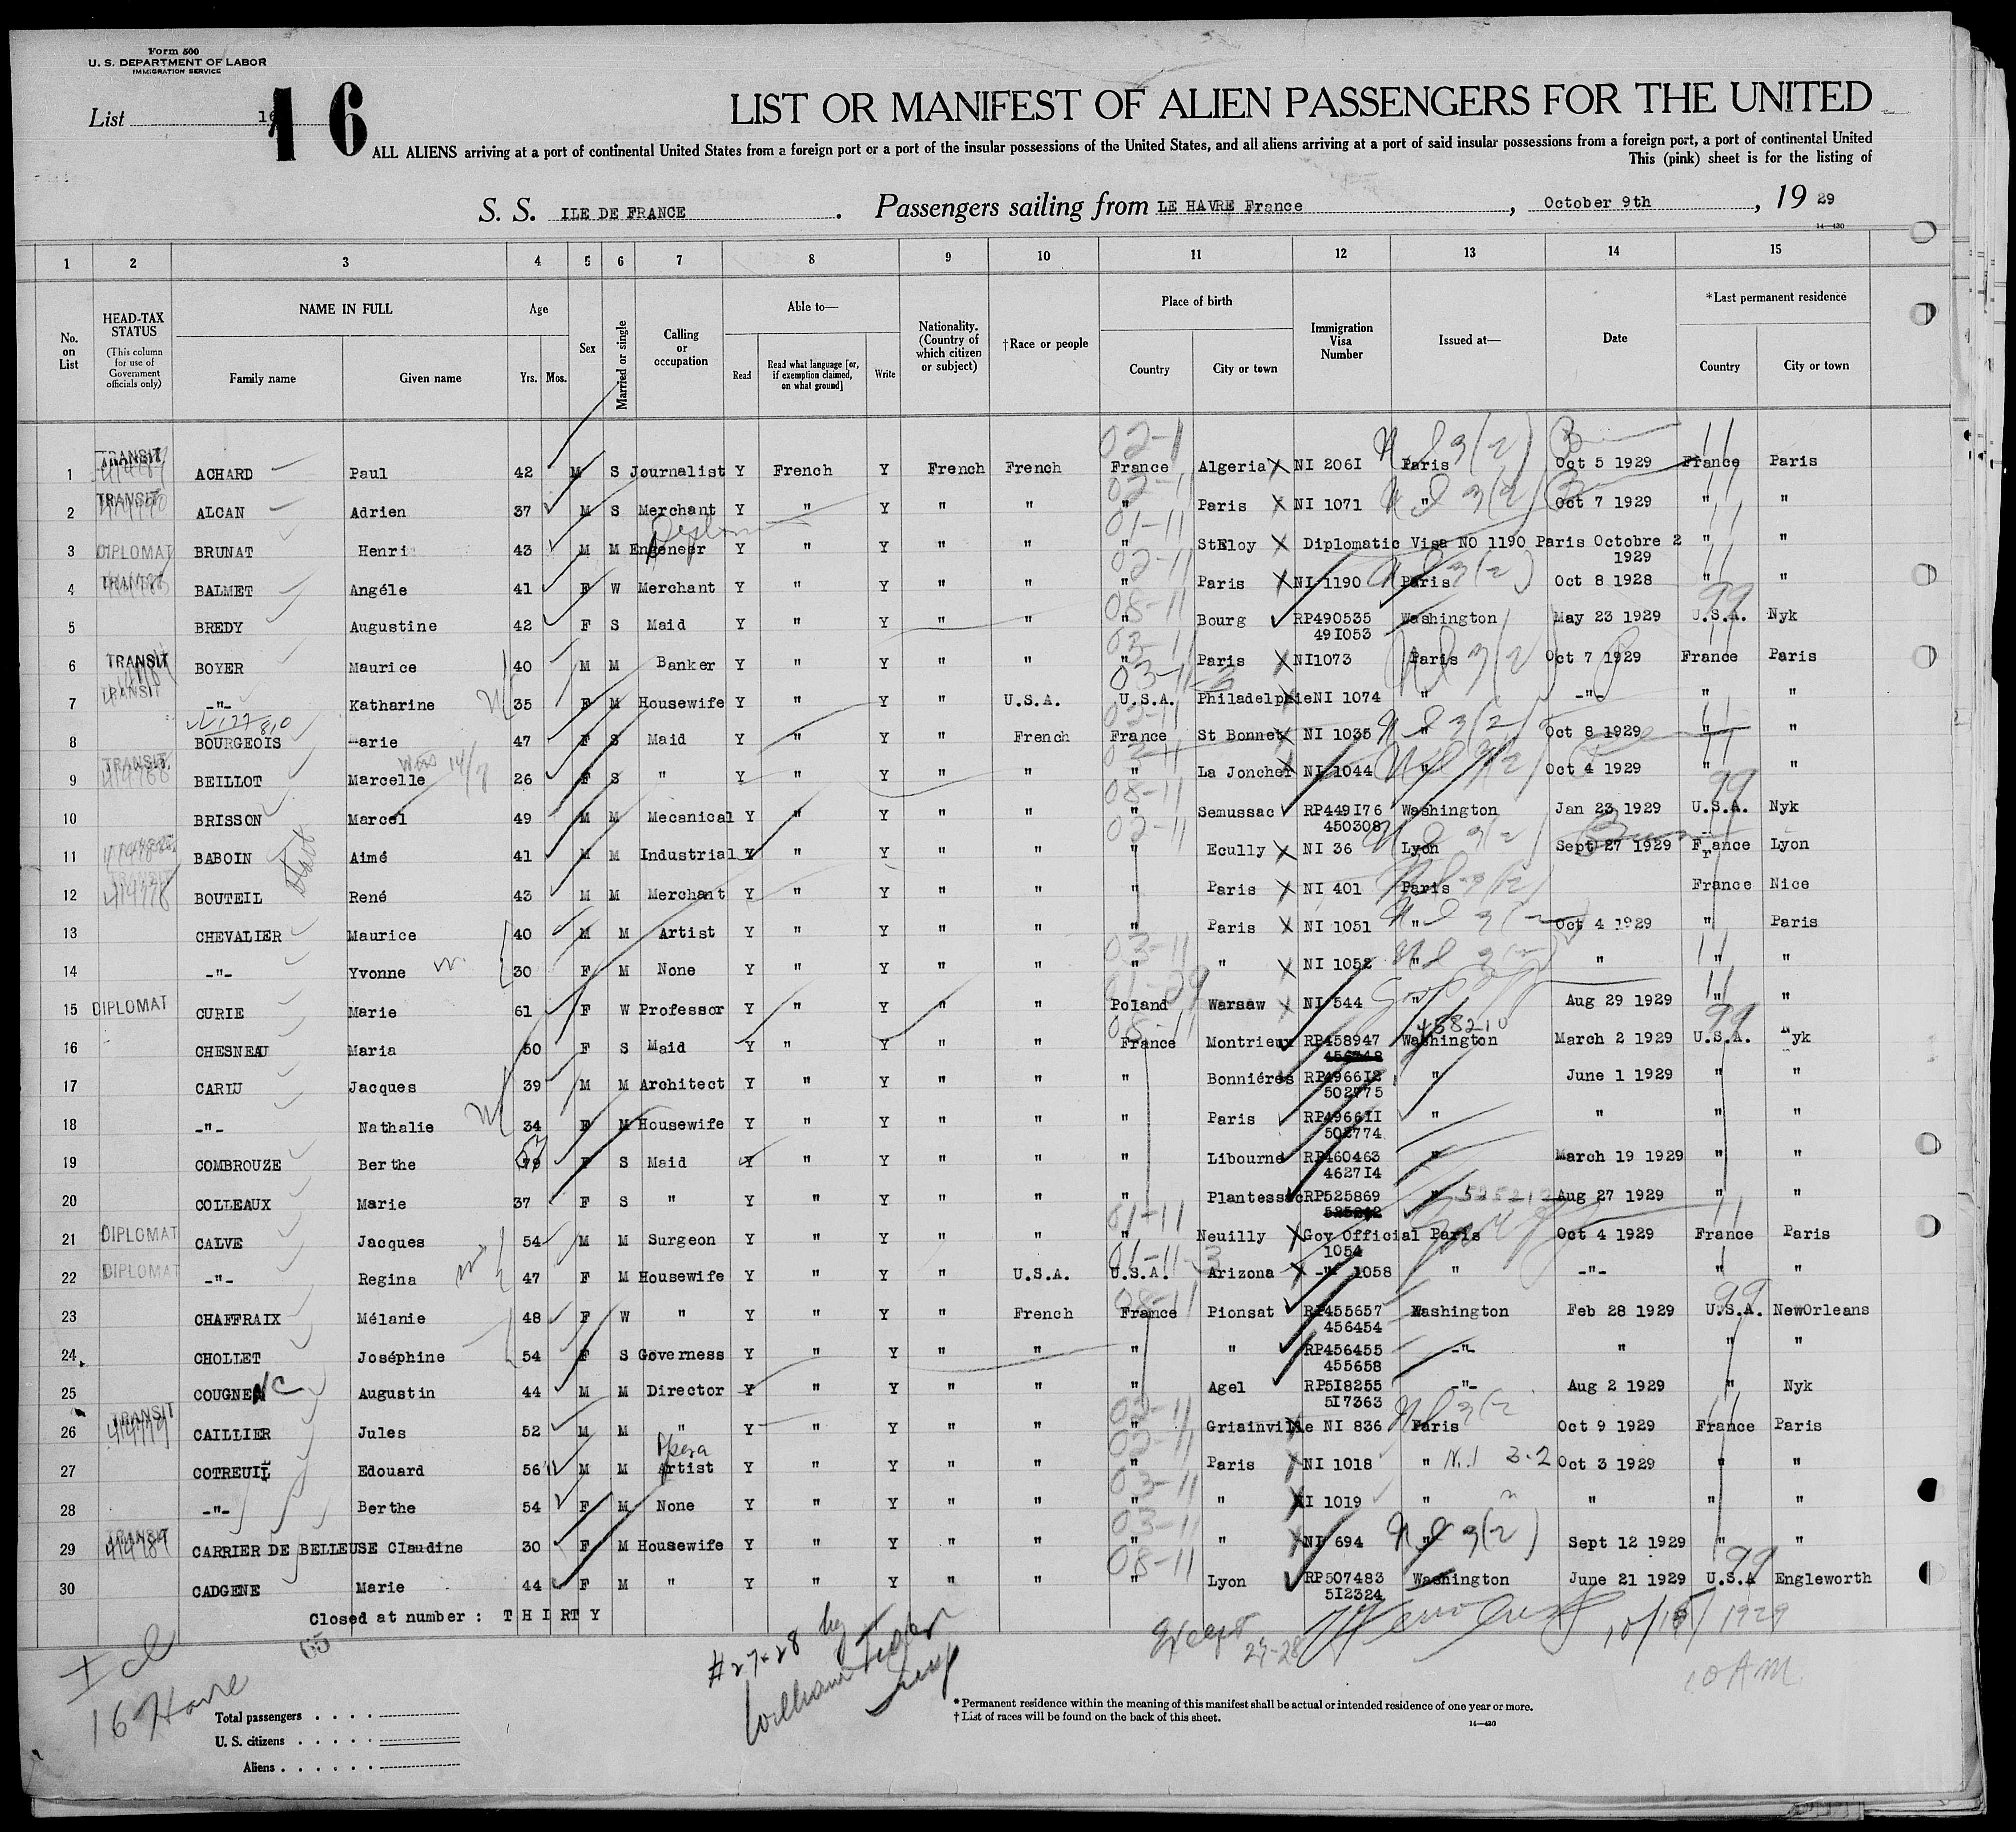 Form 500
U. S. DEPARTMENT OF LABOR
IMMIGRATION SERVICE
List 16
16
LIST OR MANIFEST OF ALIEN PASSENGERS FOR THE UNITED
ALL ALIENS arriving at a port of continental United States from a foreign port or a port of the insular possessions of the United States, and all aliens arriving at a port of said insular possessions from a foreign port, a port of continental United
This (pink) sheet is for the listing of
S. S. ILE DE FRANCE . Passengers sailing from LE HAVRE France , October 9th , 19 29
14—430
1 2 3 4 5 6 7 8 9 10 11 12 13 14 15
No. on List
HEAD-TAX STATUS (This column for use of Government officials only)
NAME IN FULL
Family name Given name
Age
Yrs. Mos.
Sex
Married or single
Calling or occupation
Able to—
Read Read what language [or, if exemption claimed, on what ground] Write
Nationality. (Country of which citizen or subject)
†Race or people
Place of birth
Country City or town
Immigration Visa Number
Issued at—
Date
*Last permanent residence
Country City or town
1 TRANSIT ACHARD Paul 42 M S Journalist Y French Y French French France Algeria NI 206I Paris Oct 5 1929 France Paris
2 TRANSIT ALCAN Adrien 37 M S Merchant Y " Y " " " Paris NI 1071 " Oct 7 1929 " "
3 DIPLOMAT BRUNAT Henri 43 M M Engeneer Y " Y " " " StEloy Diplomatic Visa NO 1190 Paris Octobre 2 1929 " "
4 TRANSIT BALMET Angéle 41 F W Merchant Y " Y " " " Paris NI 1190 Paris Oct 8 1928 " "
5 BREDY Augustine 42 F S Maid Y " Y " " " Bourg RP490535 49I053 Washington May 23 1929 U.S.A. Nyk
6 TRANSIT BOYER Maurice 40 M M Banker Y " Y " " " Paris NI1073 Paris Oct 7 1929 France Paris
7 TRANSIT -"- Katharine 35 F M Housewife Y " Y " U.S.A. U.S.A. Philadelphie NI 1074 " -"- " "
8 BOURGEOIS Marie 47 F S Maid Y " Y " French France St Bonnet NI 1035 " Oct 8 1929 " "
9 TRANSIT BEILLOT Marcelle 26 F S " Y " Y " " " La Joncher NI 1044 " Oct 4 1929 " "
10 BRISSON Marcel 49 M M Mecanical Y " Y " " " Semussac RP449I76 450308 Washington Jan 23 1929 U.S.A. Nyk
11 BABOIN Aimé 41 M M Industrial Y " Y " " " Ecully NI 36 Lyon Sept 27 1929 France Lyon
12 TRANSIT BOUTEIL René 43 M M Merchant Y " Y " " " Paris NI 401 Paris France Nice
13 CHEVALIER Maurice 40 M M Artist Y " Y " " " Paris NI 1051 " Oct 4 1929 " Paris
14 -"- Yvonne 30 F M None Y " Y " " " " NI 1052 " " " "
15 DIPLOMAT CURIE Marie 61 F W Professor Y " Y " " Poland Warsaw NI 544 " Aug 29 1929 " "
16 CHESNEAU Maria 50 F S Maid Y " Y " " France Montrieux RP458947 458210 Washington March 2 1929 U.S.A. Nyk
17 CARLU Jacques 39 M M Architect Y " Y " " " Bonniéres RP4966I2 502775 " June 1 1929 " "
18 -"- Nathalie 34 F M Housewife Y " Y " " " Paris RP4966II 502774 " " " "
19 COMBROUZE Berthe 57 F S Maid Y " Y " " " Libourne RP460463 4627I4 " March 19 1929 " "
20 COLLEAUX Marie 37 F S " Y " Y " " " Plantessac RP525869 " Aug 27 1929 " "
21 DIPLOMAT CALVE Jacques 54 M M Surgeon Y " Y " " " Neuilly Gov Official 1054 Paris Oct 4 1929 France Paris
22 DIPLOMAT -"- Regina 47 F M Housewife Y " Y " U.S.A. U.S.A. Arizona -"- 1058 " -"- " "
23 CHAFFRAIX Mélanie 48 F W " Y " Y " French France Pionsat RP455657 456454 Washington Feb 28 1929 U.S.A. NewOrleans
24 CHOLLET Joséphine 54 F S Governess Y " Y " " " " RP456455 455658 -"- " " "
25 COUGNENC Augustin 44 M M Director Y " Y " " " Agel RP5I8255 5I7363 -"- Aug 2 1929 " Nyk
26 TRANSIT CAILLIER Jules 52 M M " Y " Y " " " Griainville NI 836 Paris Oct 9 1929 France Paris
27 COTREUIL Edouard 56 M M Opera Artist Y " Y " " " Paris NI 1018 " N.I 3.2 Oct 3 1929 " "
28 -"- Berthe 54 F M None Y " Y " " " " NI 1019 " " " "
29 TRANSIT CARRIER DE BELLEUSE Claudine 30 F M Housewife Y " Y " " " " NI 694 " Sept 12 1929 " "
30 CADGENE Marie 44 F M " Y " Y " " " Lyon RP507483 5I2324 Washington June 21 1929 U.S.A Engleworth
Closed at number : T H I R T Y
65
16 Havre
#27-28 by
William
Except 27-28
10/15/1929
10 AM
Total passengers
U. S. citizens
Aliens
* Permanent residence within the meaning of this manifest shall be actual or intended residence of one year or more.
† List of races will be found on the back of this sheet.
14—430